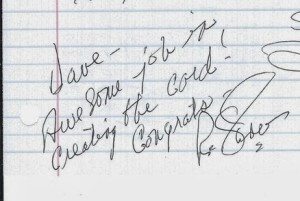 Dave-
Awesome job in
creating the card!
Congrats